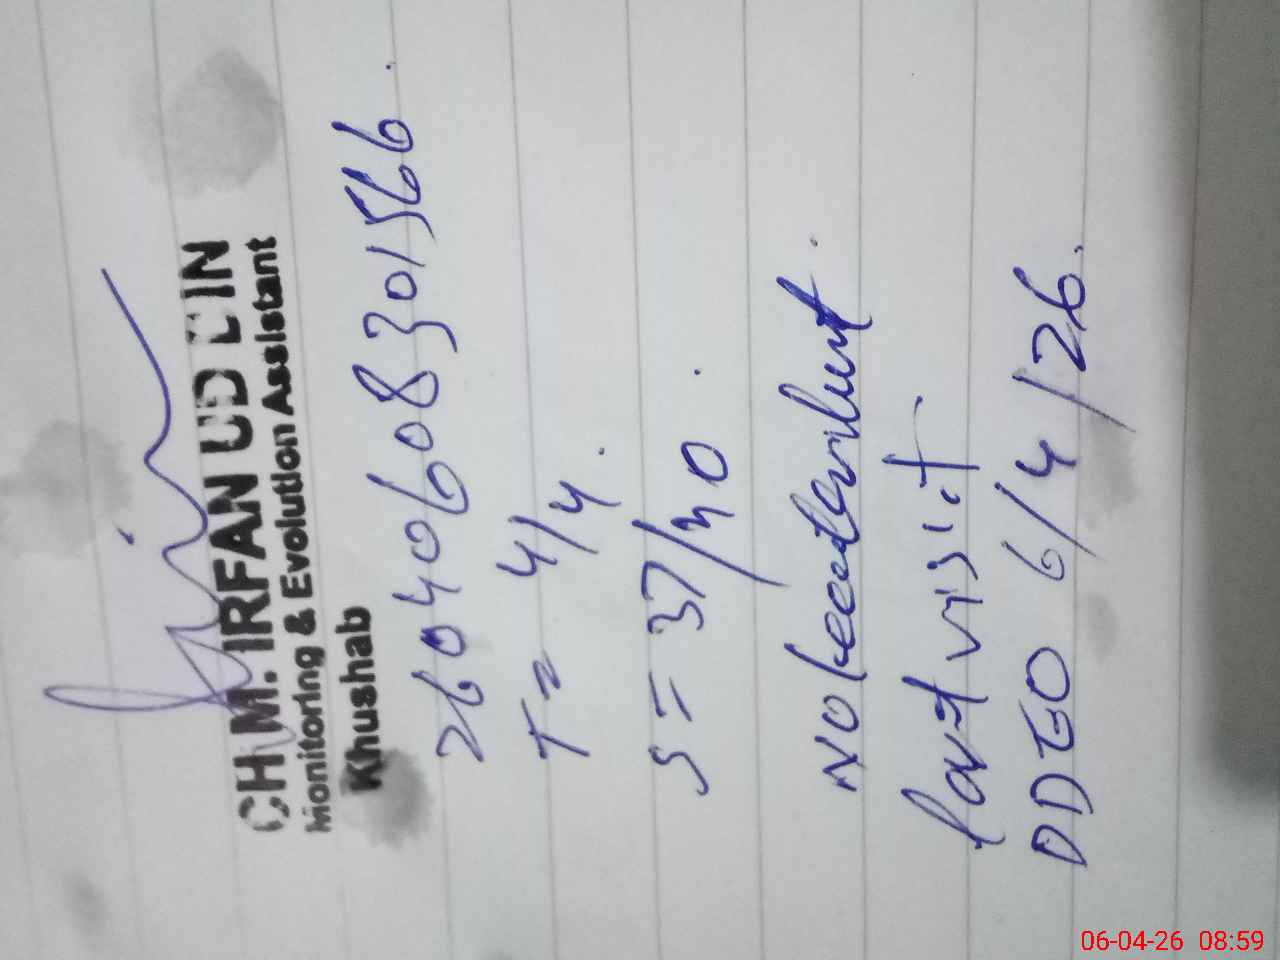 CH M. IRFAN UD DIN
Monitoring & Evolution Assistant
Khushab
26040608301566.
T = 4/4.
S = 37/40.
NO
last visit
DDEO 6/4/26.
06-04-26 08:59